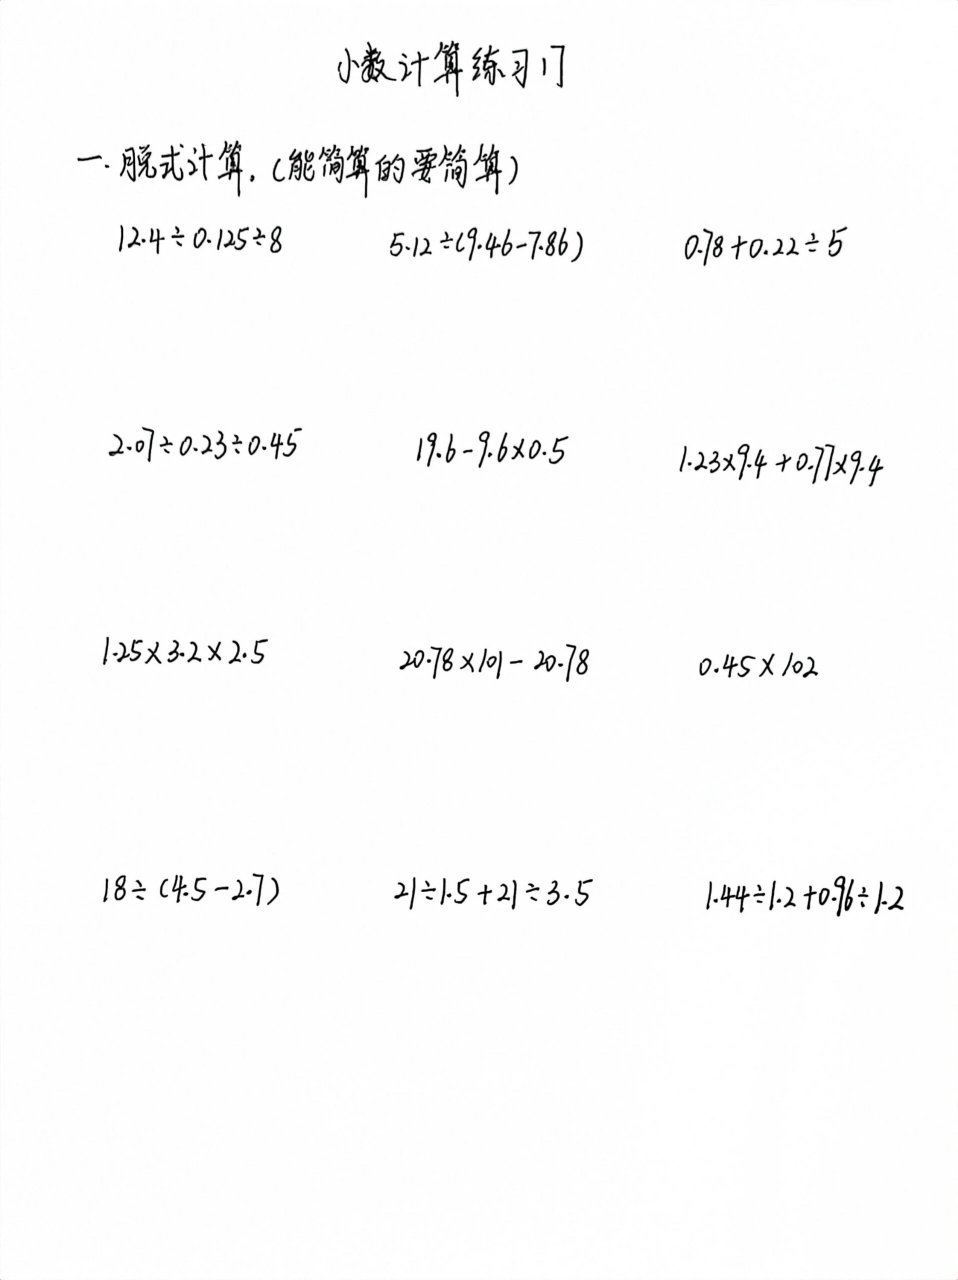 小数计算练习17
一.脱式计算.(能简算的要简算)
12.4÷0.125÷8 5.12÷(9.46-7.86) 0.78+0.22÷5
2.07÷0.23÷0.45 19.6-9.6×0.5 1.23×9.4+0.77×9.4
1.25×3.2×2.5 20.78×101-20.78 0.45×102
18÷(4.5-2.7) 21÷1.5+21÷3.5 1.44÷1.2+0.96÷1.2